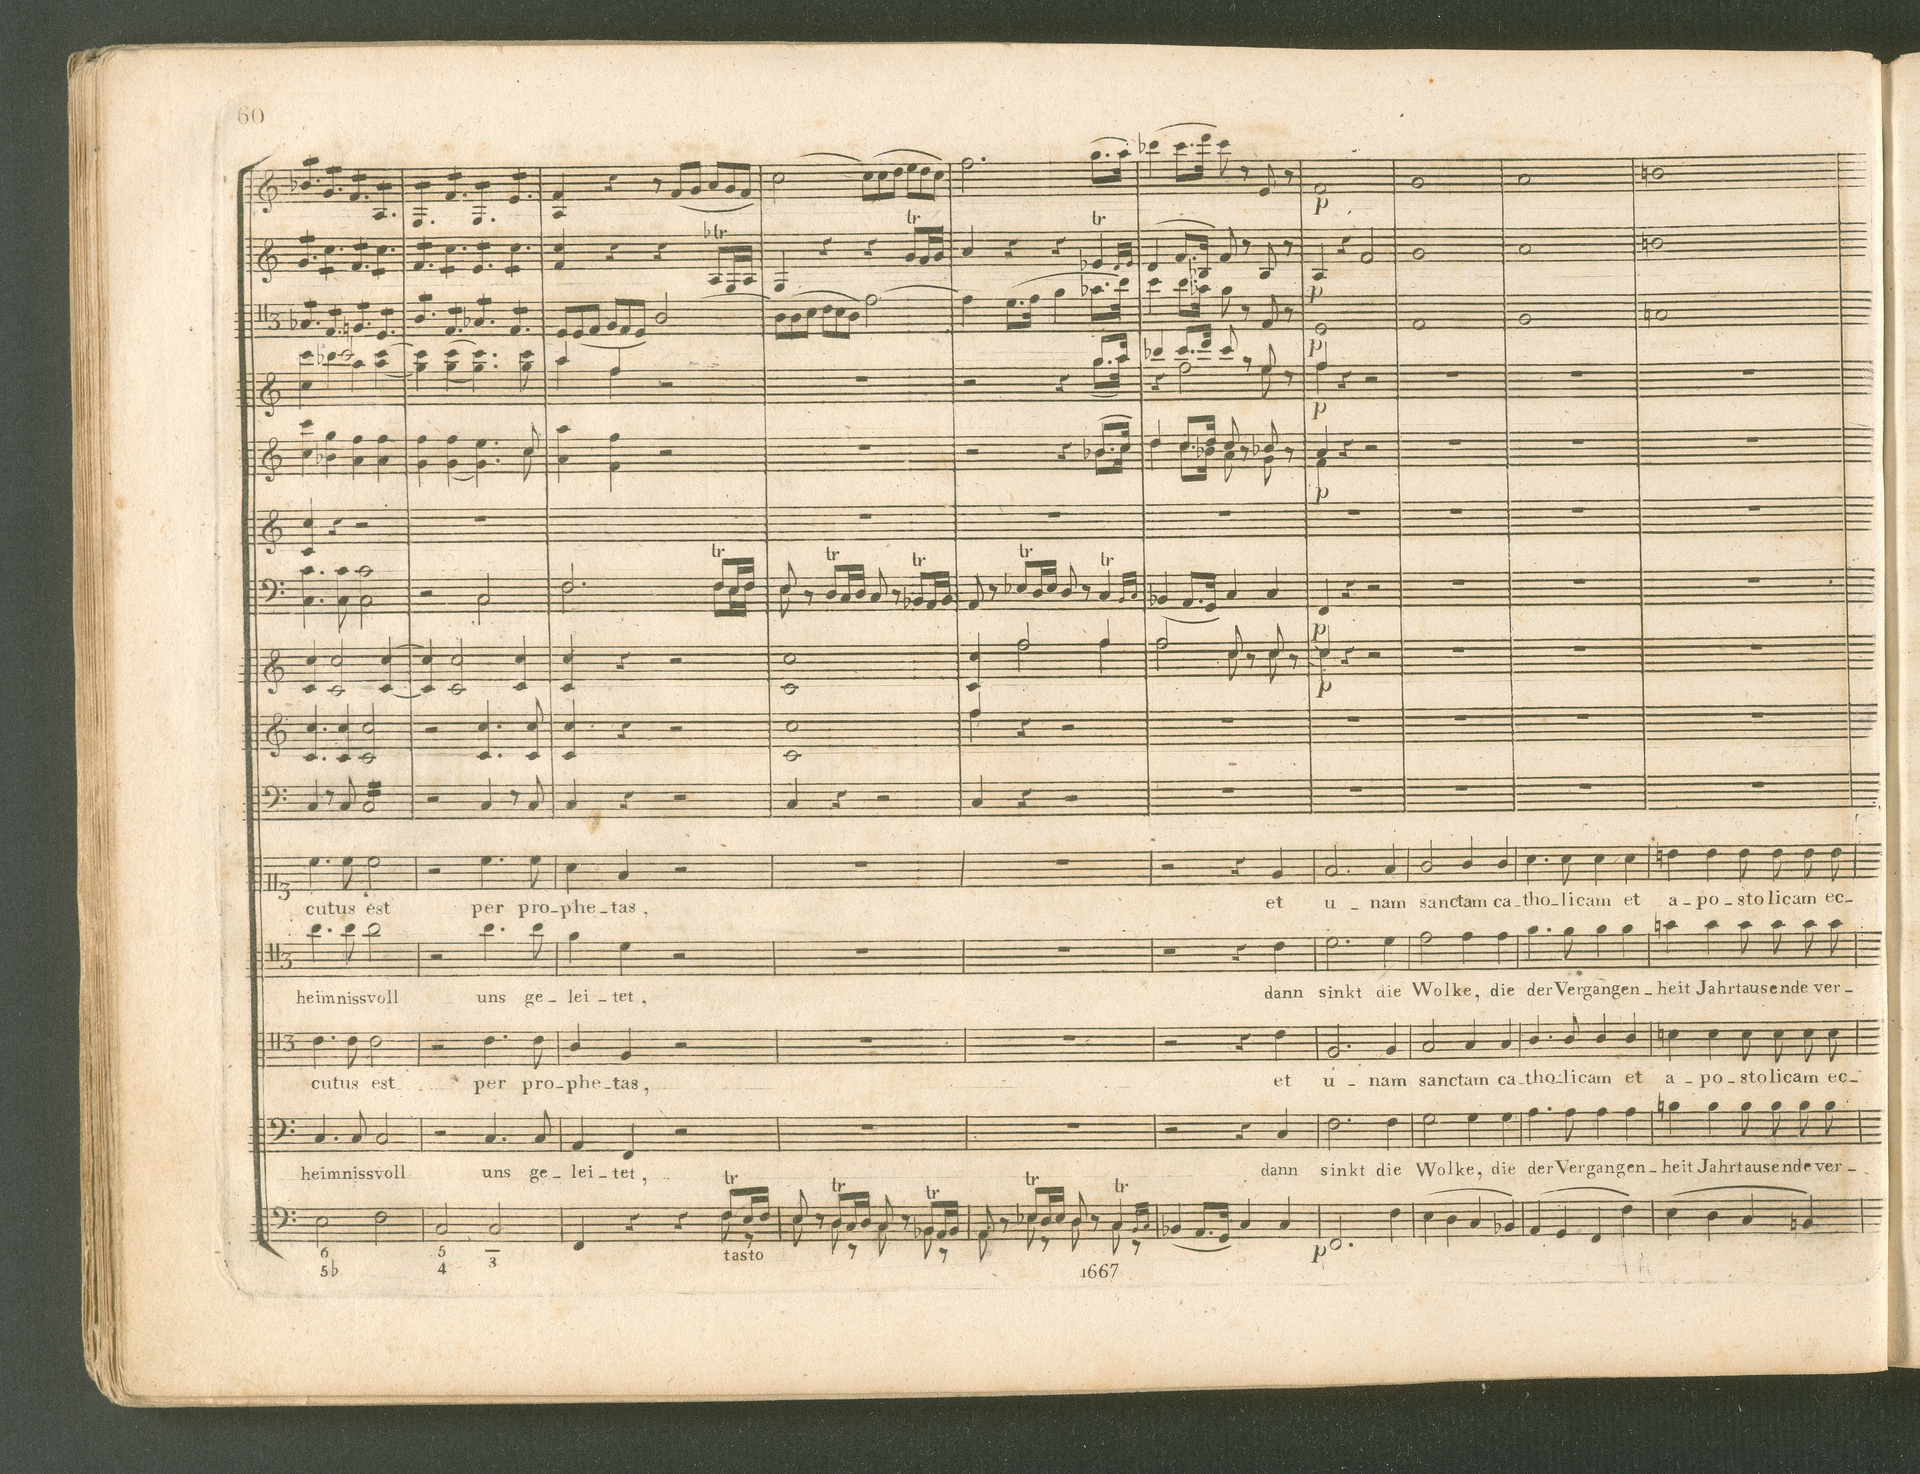 60
tr
tr
♭tr
p
p
p
p
p
tr tr tr tr tr
p
p
cutus est per pro_phe_tas, et u_nam sanctam ca_tho_licam et a_po_stolicam ec_
heimnissvoll uns ge_lei_tet, dann sinkt die Wolke, die der Vergangen_heit Jahrtausende ver_
cutus est per pro_phe_tas, et u_nam sanctam ca_tho_licam et a_po_stolicam ec_
heimnissvoll uns ge_lei_tet, dann sinkt die Wolke, die der Vergangen_heit Jahrtausende ver_
tr tr tr tr tr
p
6 5 _ tasto
5♭ 4 3
1667